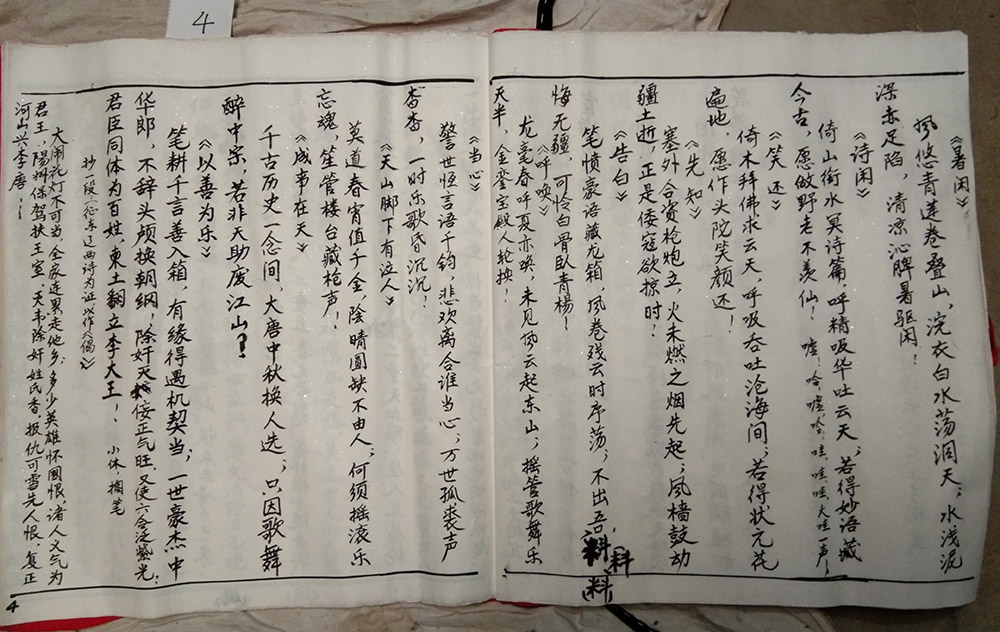 《暑闲》
风悠青莲卷叠山，浣衣白水荡涧天；水浅泥
深赤足陷，清凉沁脾暑驱闲！
《诗闲》
倚山衔水冥诗篇，呼精吸华吐云天，若得妙语藏
今古，愿做野老不羡仙！嘘！哈、嘘、哈、哇、哇、哇、大哇一声！
《笑还》
倚木拜佛求云天，呼吸吞吐沧海间，若得状元花
遍地，愿作头陀笑颜还！
《先知》
塞外合资枪炮立，火未燃之烟先起；风樯鼓动
疆土近，正是倭寇欲掠时！
《告白》
笔愤豪语藏龙箱，风卷残云时序荡，不出吾料，(料)(料)
悔无疆，可怜白骨卧青杨！
《呼唤》
龙毫春呼夏亦唤，未见伤云起东山；摇管歌舞乐
天半，金銮宝殿人轮换！
《当心》
警世恒言语千钧，悲欢离合谁当心；万世孤裘声
杳杳，一时乐歌昏沉沉！
《天山脚下有泣人》
莫道春宵值千金，阴晴圆缺不由人；何须摇滚乐
忘魂，笙管楼台藏枪声！
《成事在天》
千古历史一念间，大唐中秋换人选；只因歌舞
醉中宗，若非天助废江山！
《以善为乐》
笔耕千言善入箱，有缘得遇机契当，一世豪杰中
华郎，不辞头颅换朝纲，除奸灭佞正气旺，又使六合泛紫光；
君臣同体为百姓，東土翻立李大王！ 小休 搁笔
抄一段《征东辽西诗为证以作《偈》》
大闹花灯不可当，全家连累走他乡；多少英雄怀国恨，诸人义气为
君王，阳州保驾扶王室，天韦除奸姓氏香，报仇可雪先人恨，复正
河山兴李唐！
4
4